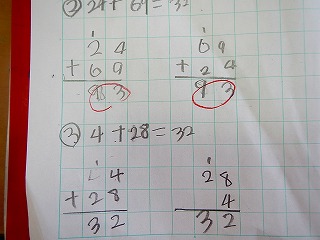 ② 24 + 69 =
1 1
2 4 6 9
+ 6 9 + 2 4
9 3 9 3
③ 4 + 28 = 32
1 1
4 2 8
+ 2 8 4
3 2 3 2